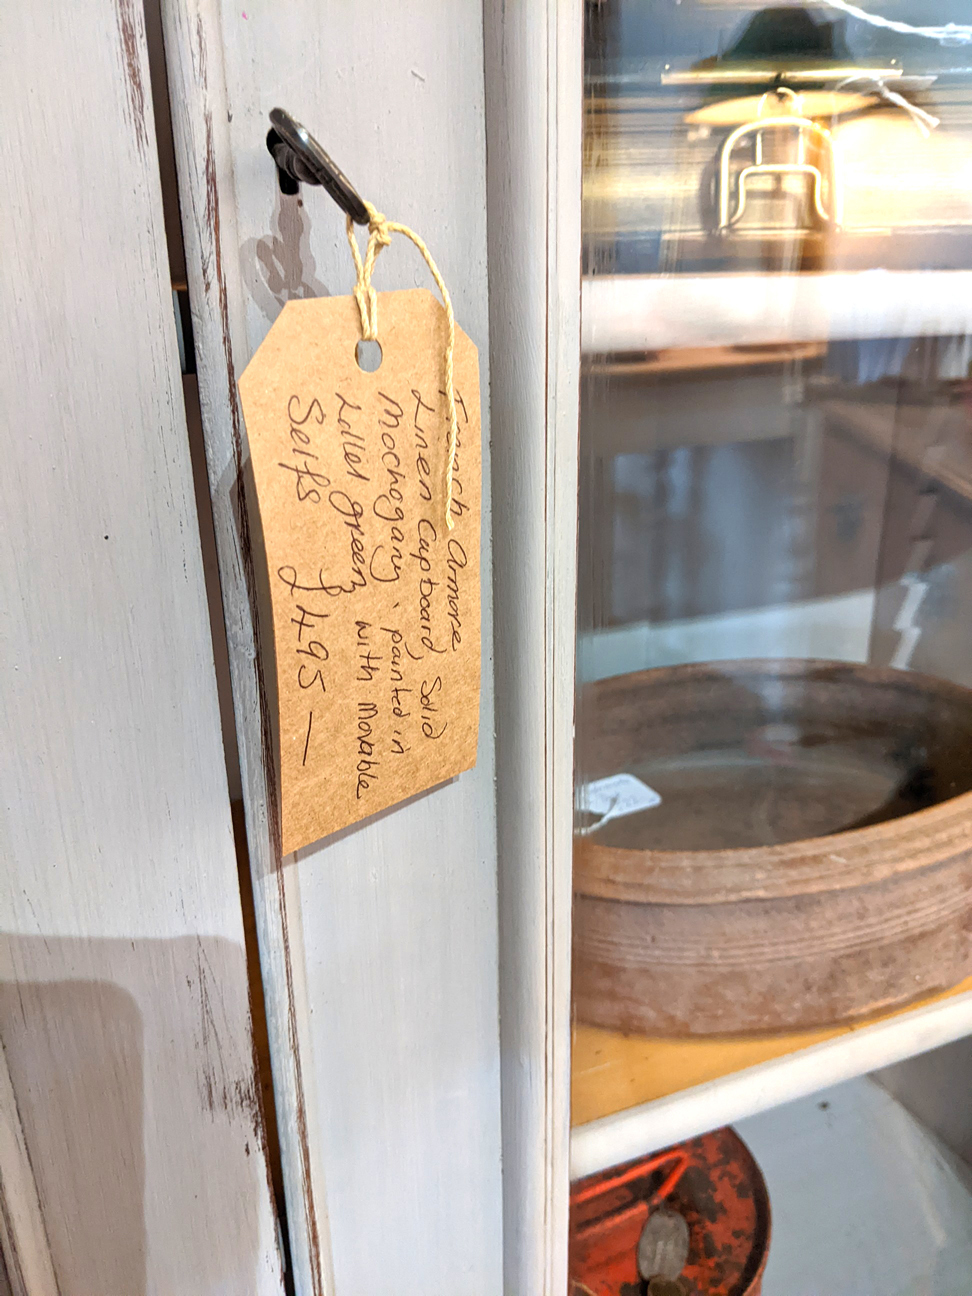 French Armore
Linen Cupboard, Solid
Mochogany, painted in
Lillel green with Movable
Selfs £495 —